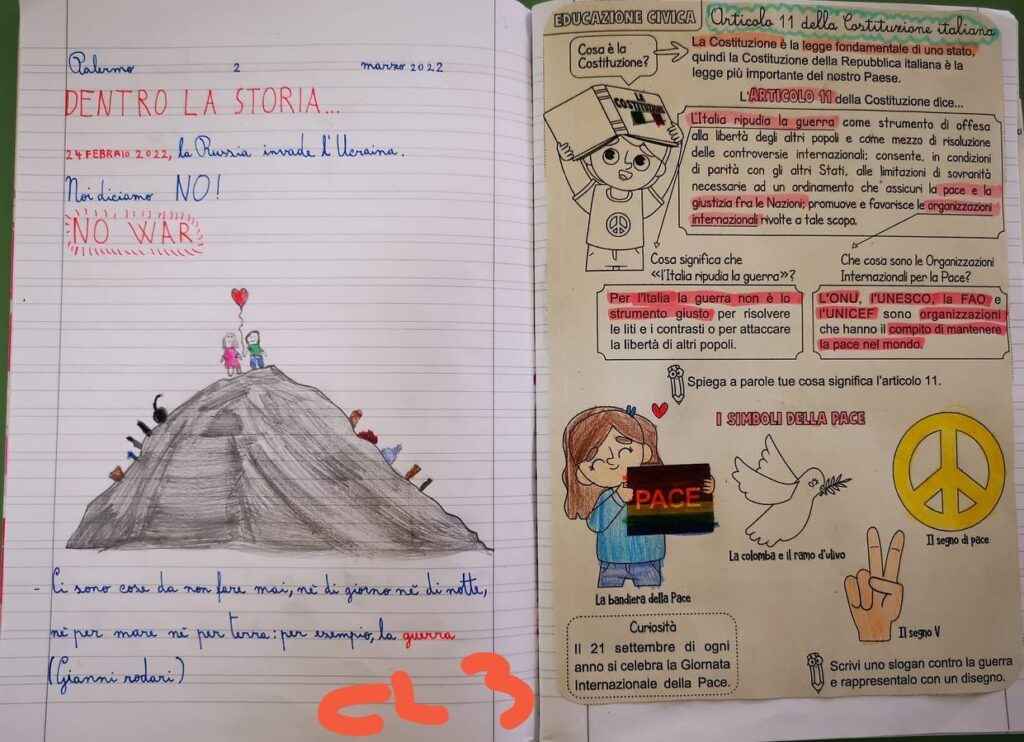 Palermo 2 marzo 2022
DENTRO LA STORIA...
24 FEBBRAIO 2022, la Russia invade l'Ucraina.
Noi diciamo NO!
NO WAR
- Ci sono cose da non fare mai, né di giorno né di notte,
né per mare né per terra: per esempio, la guerra
(Gianni rodari)
CL 3
EDUCAZIONE CIVICA Articolo 11 della Costituzione italiana
Cosa è la
Costituzione?
La Costituzione è la legge fondamentale di uno stato,
quindi la Costituzione della Repubblica italiana è la
legge più importante del nostro Paese.
LA
COSTITUZIONE
L'ARTICOLO 11 della Costituzione dice...
L'Italia ripudia la guerra come strumento di offesa
alla libertà degli altri popoli e come mezzo di risoluzione
delle controversie internazionali; consente, in condizioni
di parità con gli altri Stati, alle limitazioni di sovranità
necessarie ad un ordinamento che assicuri la pace e la
giustizia fra le Nazioni; promuove e favorisce le organizzazioni
internazionali rivolte a tale scopo.
Cosa significa che
«l'Italia ripudia la guerra»?
Per l'Italia la guerra non è lo
strumento giusto per risolvere
le liti e i contrasti o per attaccare
la libertà di altri popoli.
Che cosa sono le Organizzazioni
Internazionali per la Pace?
L'ONU, l'UNESCO, la FAO e
l'UNICEF sono organizzazioni
che hanno il compito di mantenere
la pace nel mondo.
Spiega a parole tue cosa significa l'articolo 11.
I SIMBOLI DELLA PACE
PACE
La bandiera della Pace
La colomba e il ramo d'ulivo
Il segno di pace
Il segno V
Curiosità
Il 21 settembre di ogni
anno si celebra la Giornata
Internazionale della Pace.
Scrivi uno slogan contro la guerra
e rappresentalo con un disegno.